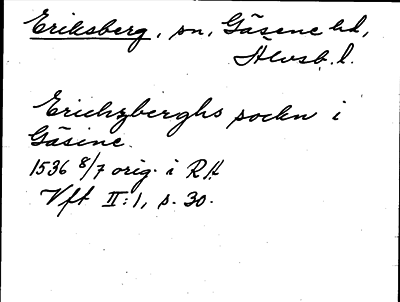 Eriksberg, sn, Gäsene hd,
Älvsb. l.
Erichzberghs sockn i
Gäsine.
1536 8/7 orig. i RA
Vft II:1, s. 30.